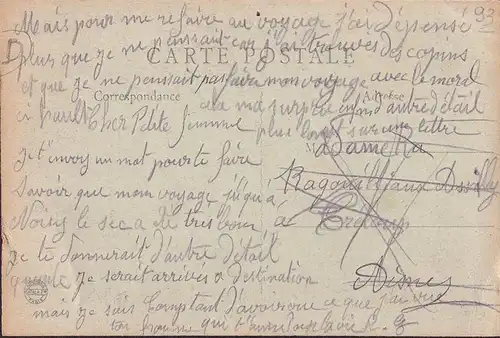 Mais pour me refaire au voyage j'ai dépensé
plus que je ne pensait car j'ai trouvés des copins
CARTE POSTALE
et que je ne pensait pas faire mon voyage avec le moral
Correspondance
Adresse
cela ma surpris enfin d'autre détail
plus long sur une lettre
Cher Ptite femme
Je t'envois un mot pour te faire
Madame
savoir que mon voyage jusqu'a
Noisy le sec a été tres bon, à
je te donnerait d'autre détail
quand je serait arrives a destination
Aisnes
mais je suis comptant d'avoir vue ce que j'ai vue
ton homme qui t'aime pour la vie